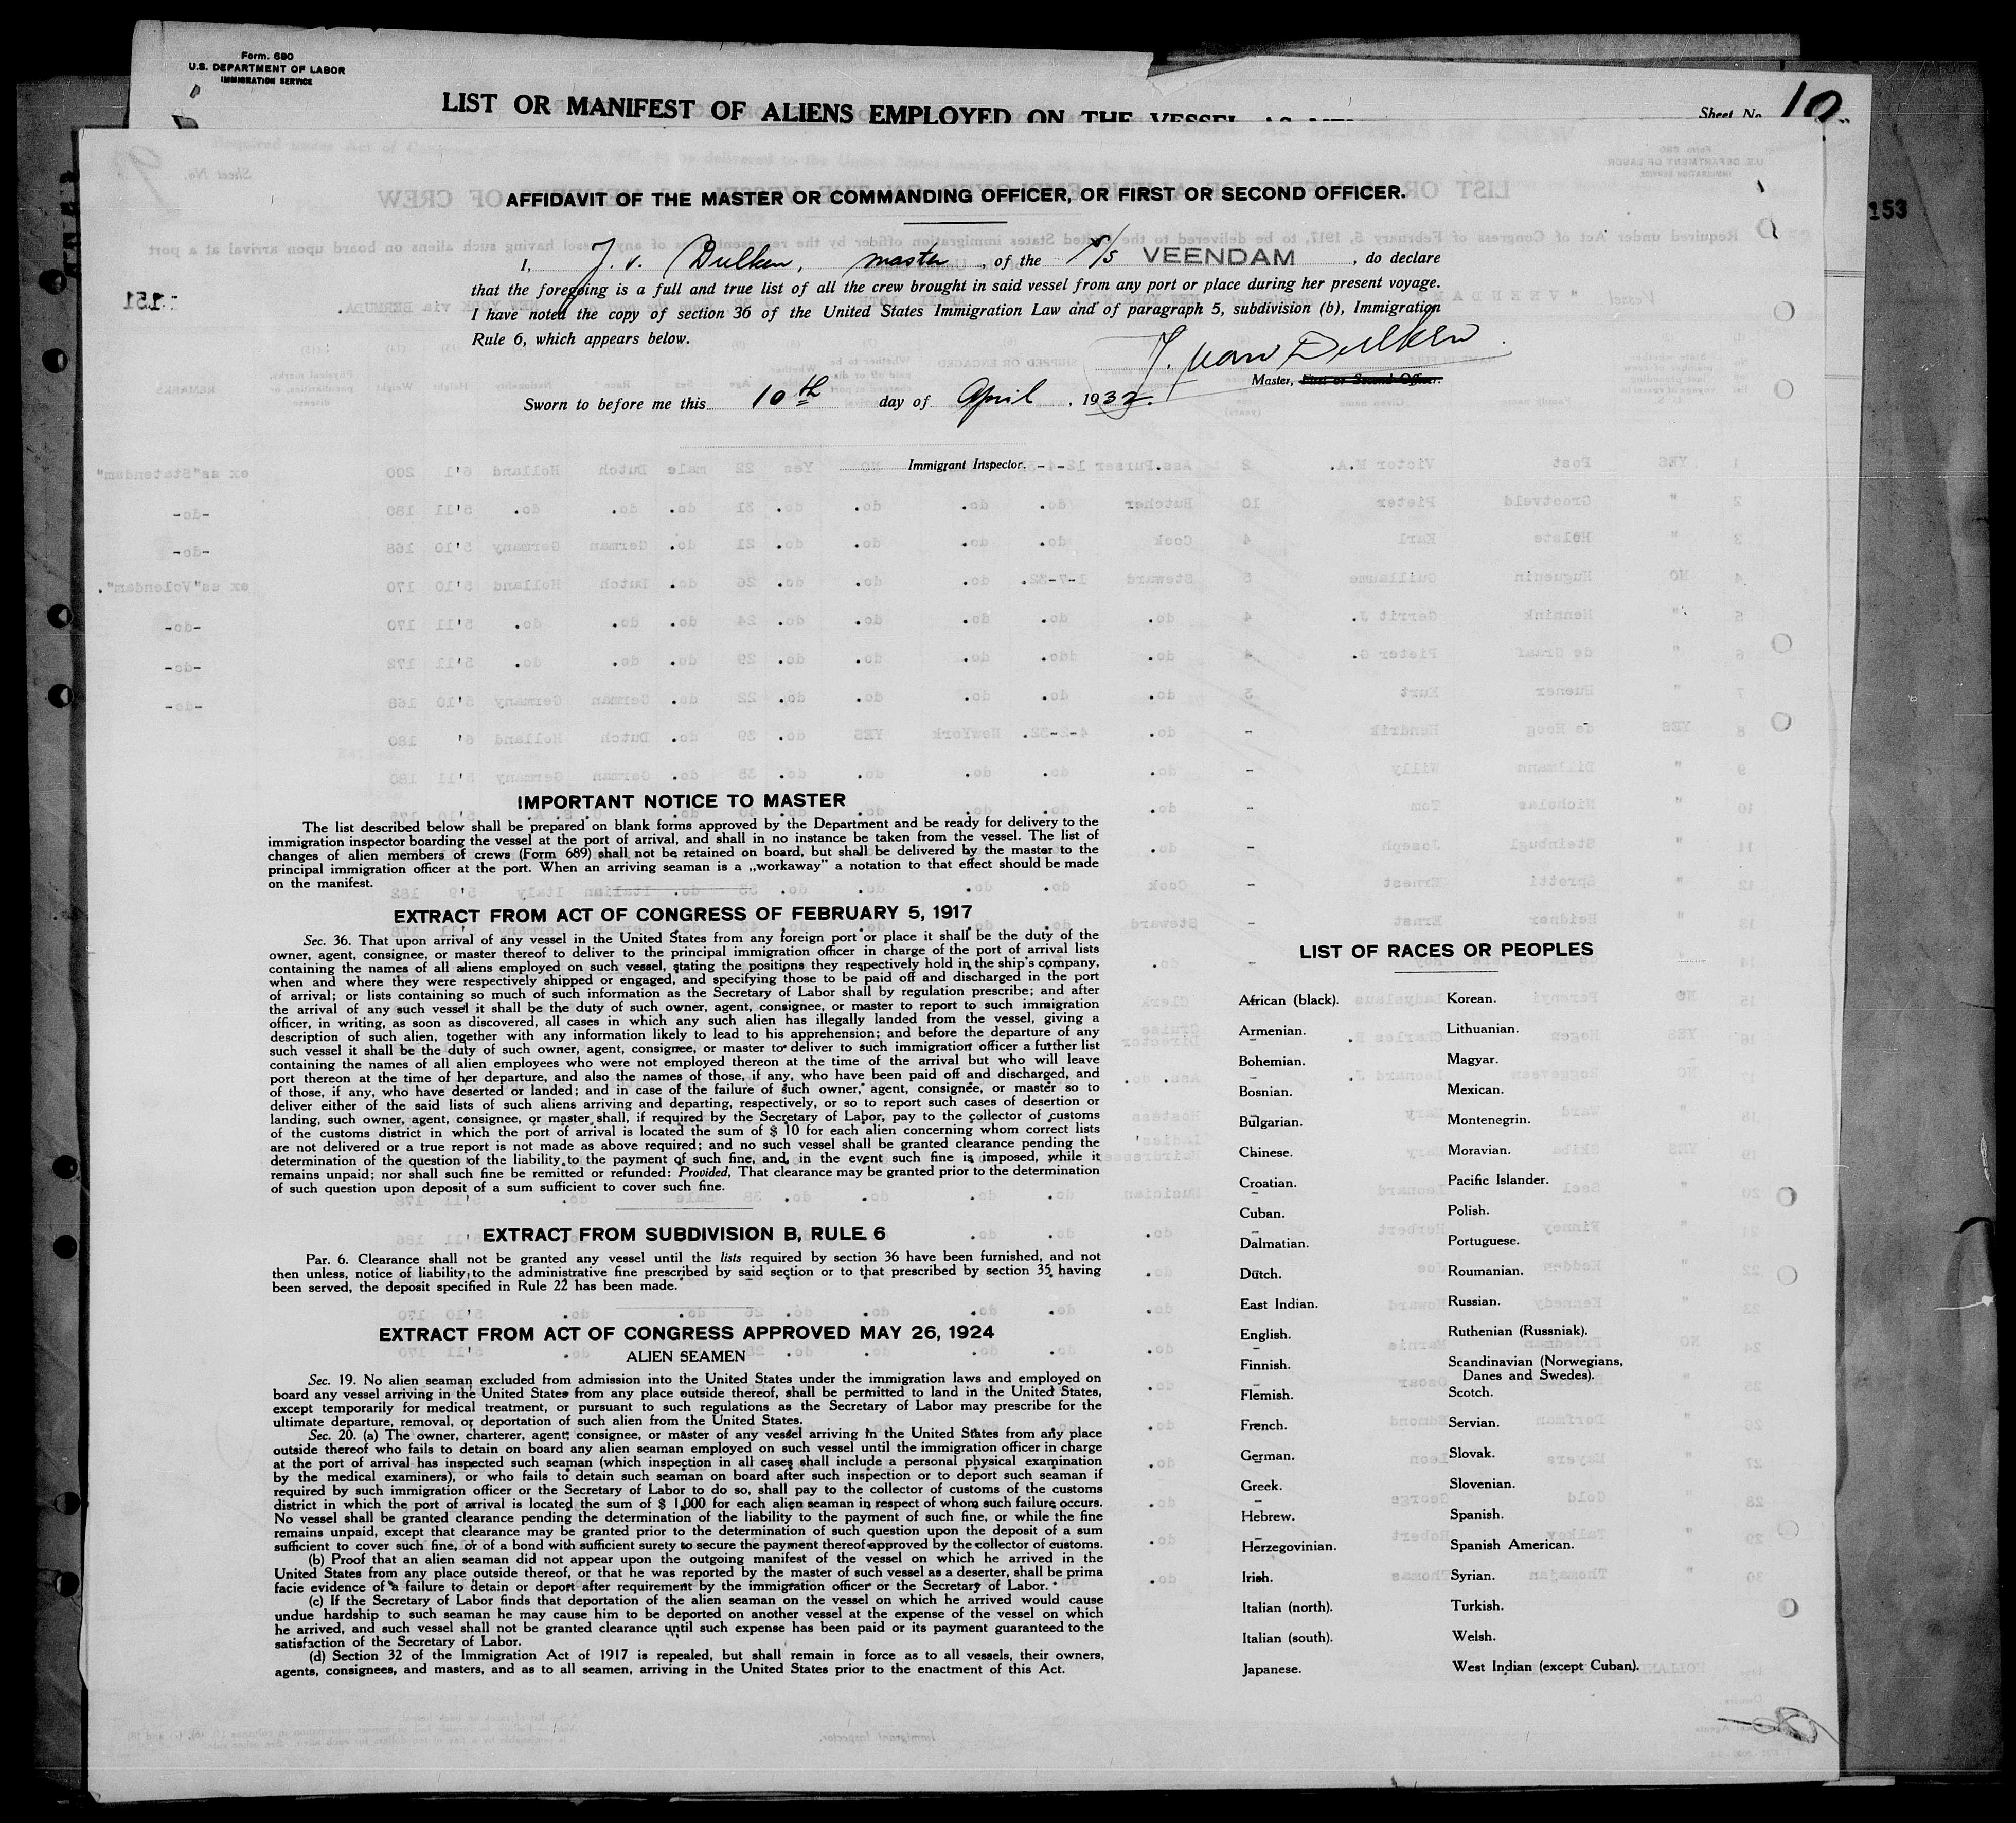 Form. 680
U.S. DEPARTMENT OF LABOR
IMMIGRATION SERVICE
LIST OR MANIFEST OF ALIENS EMPLOYED ON THE VESSEL AS
Sheet No. 10
153
AFFIDAVIT OF THE MASTER OR COMMANDING OFFICER, OR FIRST OR SECOND OFFICER.
I, J. v. Dulken, master, of the S/S VEENDAM, do declare
that the foregoing is a full and true list of all the crew brought in said vessel from any port or place during her present voyage.
151
I have noted the copy of section 36 of the United States Immigration Law and of paragraph 5, subdivision (b), Immigration
Rule 6, which appears below.
J. van Dulken
Master, First or Second Officer.
Sworn to before me this 10th day of April, 1932.
Immigrant Inspector.
IMPORTANT NOTICE TO MASTER
The list described below shall be prepared on blank forms approved by the Department and be ready for delivery to the
immigration inspector boarding the vessel at the port of arrival, and shall in no instance be taken from the vessel. The list of
changes of alien members of crews (Form 689) shall not be retained on board, but shall be delivered by the master to the
principal immigration officer at the port. When an arriving seaman is a „workaway" a notation to that effect should be made
on the manifest.
EXTRACT FROM ACT OF CONGRESS OF FEBRUARY 5, 1917
Sec. 36. That upon arrival of any vessel in the United States from any foreign port or place it shall be the duty of the
owner, agent, consignee, or master thereof to deliver to the principal immigration officer in charge of the port of arrival lists
containing the names of all aliens employed on such vessel, stating the positions they respectively hold in the ship's company,
when and where they were respectively shipped or engaged, and specifying those to be paid off and discharged in the port
of arrival; or lists containing so much of such information as the Secretary of Labor shall by regulation prescribe; and after
the arrival of any such vessel it shall be the duty of such owner, agent, consignee, or master to report to such immigration
officer, in writing, as soon as discovered, all cases in which any such alien has illegally landed from the vessel, giving a
description of such alien, together with any information likely to lead to his apprehension; and before the departure of any
such vessel it shall be the duty of such owner, agent, consignee, or master to deliver to such immigration officer a further list
containing the names of all alien employees who were not employed thereon at the time of the arrival but who will leave
port thereon at the time of her departure, and also the names of those, if any, who have been paid off and discharged, and
of those, if any, who have deserted or landed; and in case of the failure of such owner, agent, consignee, or master so to
deliver either of the said lists of such aliens arriving and departing, respectively, or so to report such cases of desertion or
landing, such owner, agent, consignee, or master shall, if required by the Secretary of Labor, pay to the collector of customs
of the customs district in which the port of arrival is located the sum of $ 10 for each alien concerning whom correct lists
are not delivered or a true report is not made as above required; and no such vessel shall be granted clearance pending the
determination of the question of the liability to the payment of such fine, and, in the event such fine is imposed, while it
remains unpaid; nor shall such fine be remitted or refunded: Provided, That clearance may be granted prior to the determination
of such question upon deposit of a sum sufficient to cover such fine.
EXTRACT FROM SUBDIVISION B, RULE 6
Par. 6. Clearance shall not be granted any vessel until the lists required by section 36 have been furnished, and not
then unless, notice of liability to the administrative fine prescribed by said section or to that prescribed by section 35 having
been served, the deposit specified in Rule 22 has been made.
EXTRACT FROM ACT OF CONGRESS APPROVED MAY 26, 1924
ALIEN SEAMEN
Sec. 19. No alien seaman excluded from admission into the United States under the immigration laws and employed on
board any vessel arriving in the United States from any place outside thereof, shall be permitted to land in the United States,
except temporarily for medical treatment, or pursuant to such regulations as the Secretary of Labor may prescribe for the
ultimate departure, removal, or deportation of such alien from the United States.
Sec. 20. (a) The owner, charterer, agent, consignee, or master of any vessel arriving in the United States from any place
outside thereof who fails to detain on board any alien seaman employed on such vessel until the immigration officer in charge
at the port of arrival has inspected such seaman (which inspection in all cases shall include a personal physical examination
by the medical examiners), or who fails to detain such seaman on board after such inspection or to deport such seaman if
required by such immigration officer or the Secretary of Labor to do so, shall pay to the collector of customs of the customs
district in which the port of arrival is located the sum of $ 1,000 for each alien seaman in respect of whom such failure occurs.
No vessel shall be granted clearance pending the determination of the liability to the payment of such fine, or while the fine
remains unpaid, except that clearance may be granted prior to the determination of such question upon the deposit of a sum
sufficient to cover such fine, or of a bond with sufficient surety to secure the payment thereof approved by the collector of customs.
(b) Proof that an alien seaman did not appear upon the outgoing manifest of the vessel on which he arrived in the
United States from any place outside thereof, or that he was reported by the master of such vessel as a deserter, shall be prima
facie evidence of a failure to detain or deport after requirement by the immigration officer or the Secretary of Labor.
(c) If the Secretary of Labor finds that deportation of the alien seaman on the vessel on which he arrived would cause
undue hardship to such seaman he may cause him to be deported on another vessel at the expense of the vessel on which
he arrived, and such vessel shall not be granted clearance until such expense has been paid or its payment guaranteed to the
satisfaction of the Secretary of Labor.
(d) Section 32 of the Immigration Act of 1917 is repealed, but shall remain in force as to all vessels, their owners,
agents, consignees, and masters, and as to all seamen, arriving in the United States prior to the enactment of this Act.
LIST OF RACES OR PEOPLES
African (black).
Armenian.
Bohemian.
Bosnian.
Bulgarian.
Chinese.
Croatian.
Cuban.
Dalmatian.
Dutch.
East Indian.
English.
Finnish.
Flemish.
French.
German.
Greek.
Hebrew.
Herzegovinian.
Irish.
Italian (north).
Italian (south).
Japanese.
Korean.
Lithuanian.
Magyar.
Mexican.
Montenegrin.
Moravian.
Pacific Islander.
Polish.
Portuguese.
Roumanian.
Russian.
Ruthenian (Russniak).
Scandinavian (Norwegians,
Danes and Swedes).
Scotch.
Servian.
Slovak.
Slovenian.
Spanish.
Spanish American.
Syrian.
Turkish.
Welsh.
West Indian (except Cuban).